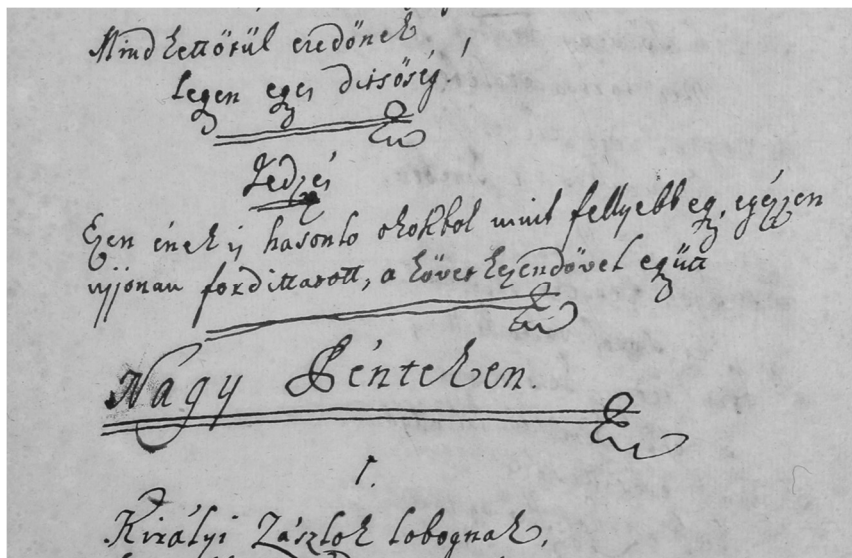 Mind kettőrűl eredőnek
Legen eges ditsőség!
Jedzés
Ezen ének is hasonlo okokbol mint fellyebb eg, egészen
ujjonan fordittatott, a következendővel együtt
Nagy Pénteken.
1.
Királyi Zászlok lobognak,